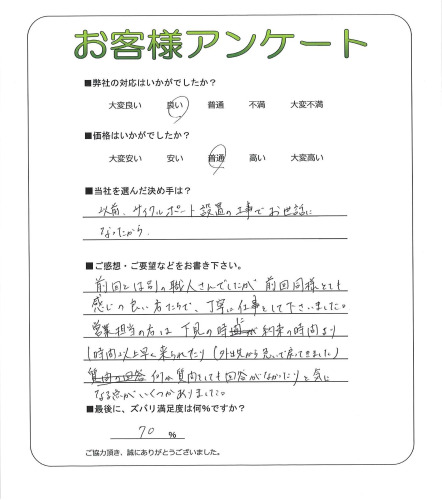 お客様アンケート
■弊社の対応はいかがでしたか？
大変良い 良い 普通 不満 大変不満
■価格はいかがでしたか？
大変安い 安い 普通 高い 大変高い
■当社を選んだ決め手は？
以前、サイクルポート設置の工事でお世話に
なったから
■ご感想・ご要望などをお書き下さい。
前回とは別の職人さんでしたが前回同様とても
感じの良い方たちで、丁寧に仕事をして下さいました。
営業担当の方は下見の時に約束の時間より
1時間以上早く来られたり(外出先から急いで戻ってきました)
質問の回答 何か質問をしても回答がなかったりと気に
なる点がいくつかありました。
■最後に、ズバリ満足度は何%ですか？
70 %
ご協力頂き、誠にありがとうございました。